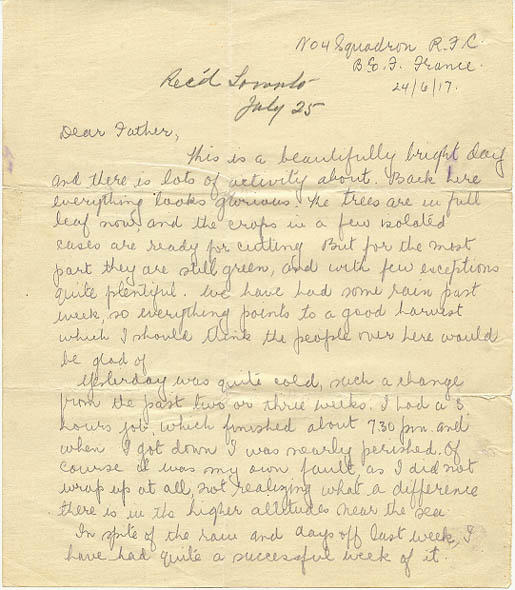 No 4 Squadron R.F.C.
B.E.F. France.
24/6/17.
Rec'd Toronto
July 25
Dear Father,
This is a beautifully bright day
and there is lots of activity about. Back here
everything looks glorious. The trees are in full
leaf now, and the crops in a few isolated
cases are ready for cutting But for the most
part they are still green, and with few exceptions
quite plentiful. We have had some rain past
week, so everything points to a good harvest
which I should think the people over here would
be glad of
Yesterday was quite cold, such a change
from the past two or three weeks. I had a 3
hours job which finished about 7.30 pm. and
when I got down I was nearly perished. Of
course it was my own fault, as I did not
wrap up at all, not realizing what a difference
there is in the higher altitudes near the sea
In spite of the rain and days off last week, I
have had quite a successful week of it.